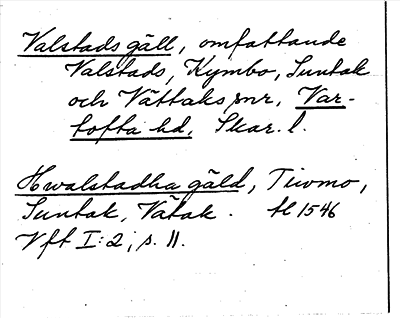 Valstads gäll, omfattande
Valstads, Kymbo, Suntak
och Vättaks snr, Var-
tofta hd, Skar. l.
Hwalstadha gäld, Tiwmo,
Suntak, Vätak. tl 1546
Vft I:2, s. 11.